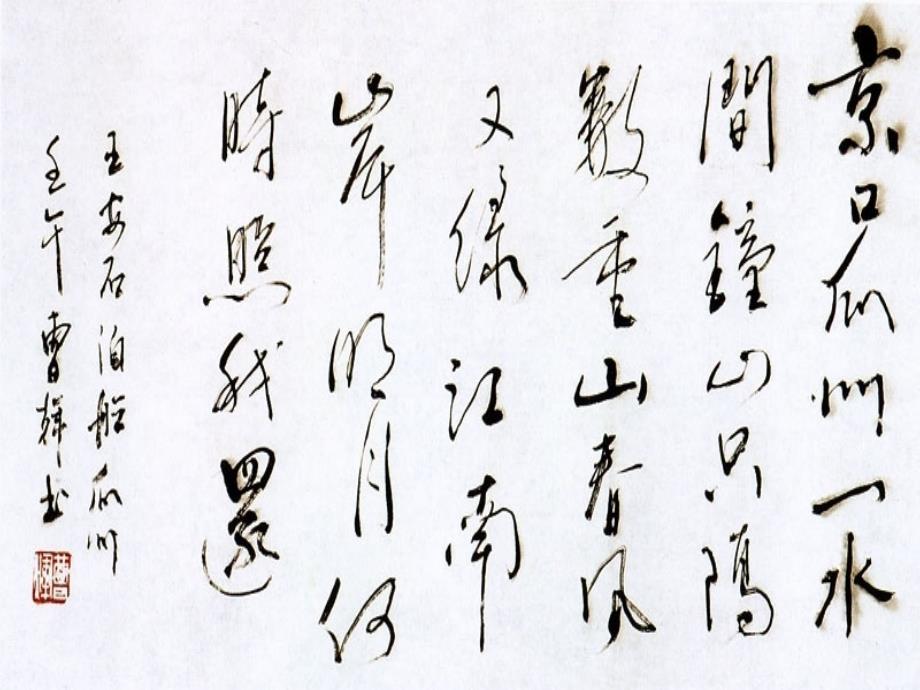 京口瓜州一水
間鐘山只隔
數重山春風
又绿江南
岸明月何
時照我還
王安石泊船瓜州
壬午曹輝书